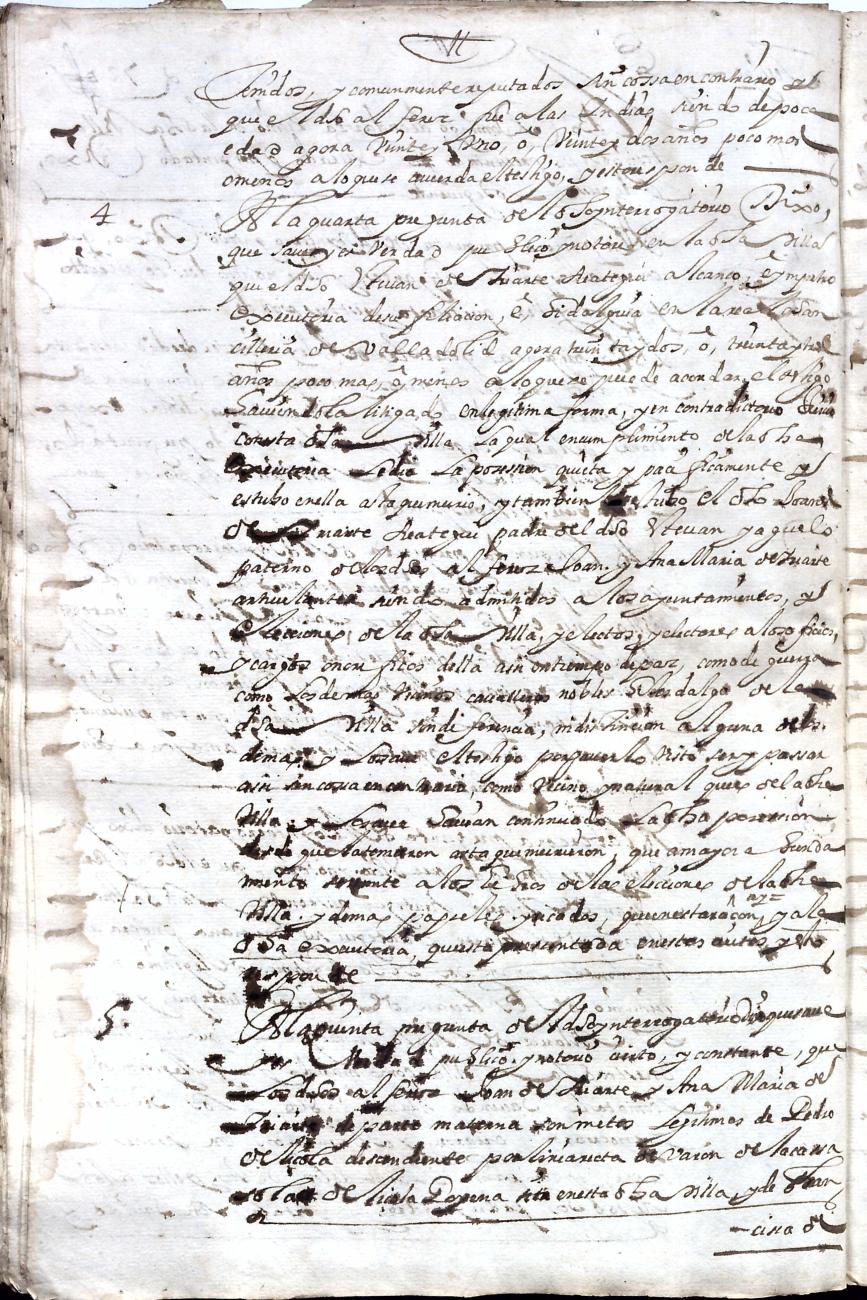 tenidos, y comunmente reputados sin cossa en contrario y
que el dho alferez fue a las Indias siendo de poca
edad agora veinte y uno, o, veinte y dos años poco mas
o menos a lo que se acuerda el testigo, y esto responde
4 A la quarta pregunta del dho ynterrogatorio Dixo,
que save y es verdad publico y notorio en la dha villa
que el dho Estevan de Iriarte Reategui alcanço, e ympetro
executoria de su filiacion, e hidalguia en la real chan
cilleria de Valladolid agora treinta y dos, o, treinta y tres
años poco mas, o menos a lo que se puede acordar el testigo
haviendola litigado en legitima forma, y en contradictorio
con esta dha villa la qual en cumplimiento de la dha
executoria le dio la posesion quieta y pacificamente y
estubo en ella asta que murio, y tambien estubo el dho Joan
de Iriarte Reategui padre del dho Estevan y aguelo
paterno de los dhos alferez Joan, y Ana Maria de Iriarte
articulantes siendo admitidos a los ayuntamientos, y
elecciones de la dha villa, y electos, y electores a los oficios,
y cargos onorificos della asi en tiempo de paz, como de guerra
como los demas vecinos cavalleros nobles hijosdalgo de la
dha villa sin diferencia, ni distincion alguna de los
demas y lo save el testigo por haverlo visto ser y passar
assi sin cossa en contrario, como vecino y natural que es de la dha
villa y save havian continuado la dha posession
desde que la tomaron asta que murieron, que a mayor a bunda
miento se remite a los libros de las elecciones de la dha
villa y demas papeles y recados, que en esta raçon ay y a la
dha executoria, que esta presentada en estos autos y esto
responde
5 A la quinta pregunta del dho ynterrogatorio Dixo que save
y es verdad publico y notorio cierto, y constante, que
los dhos alferez Joan de Iriarte y Ana Maria de
Iriarte de parte materna son nietos legitimos de Pedro
de liçola descendiente por linia recta de varon de la cassa
solar de liçola Doyena sita en esta dha villa, y de Fran
cisca de